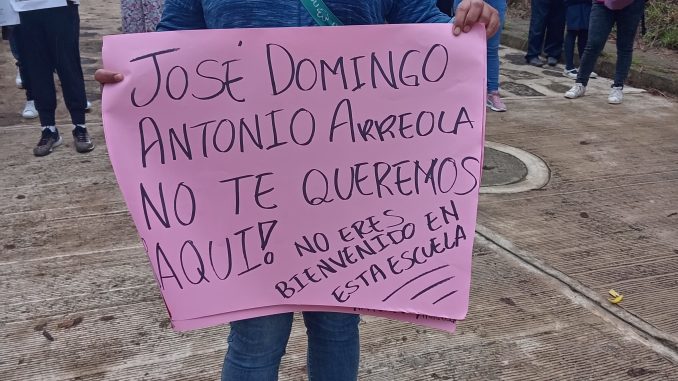 JOSÉ DOMINGO
ANTONIO ARREOLA
NO TE QUEREMOS
¡AQUI! NO ERES
BIENVENIDO EN
ESTA ESCUELA